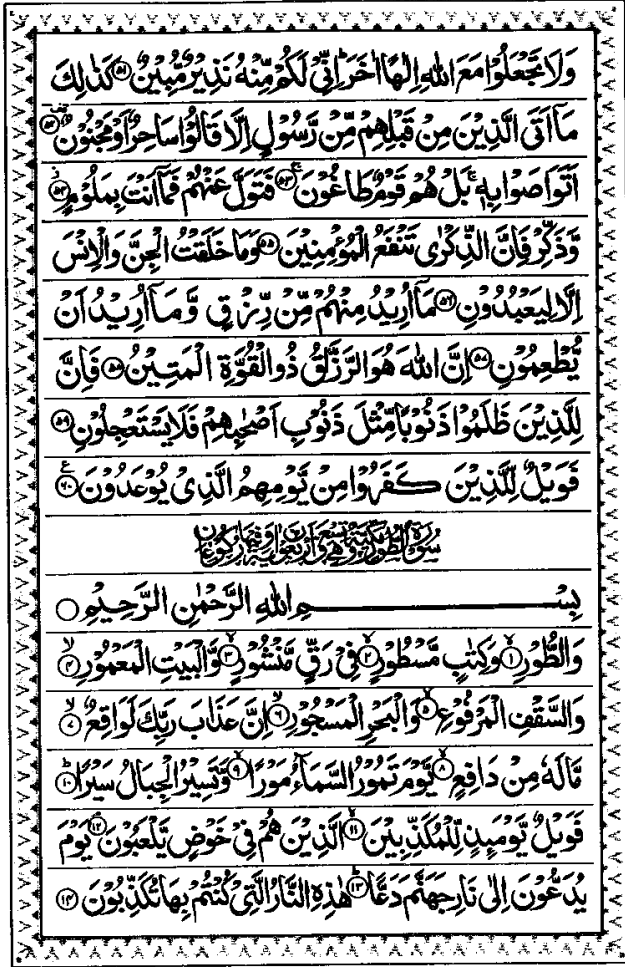 وَلَا تَجْعَلُوْا مَعَ اللّٰهِ اِلٰهًا اٰخَرَ ؕ اِنِّیْ لَكُمْ مِّنْهُ نَذِیْرٌ مُّبِیْنٌ ۚ﴿۵۱﴾ كَذٰلِكَ
مَاۤ اَتَی الَّذِیْنَ مِنْ قَبْلِهِمْ مِّنْ رَّسُوْلٍ اِلَّا قَالُوْا سَاحِرٌ اَوْ مَجْنُوْنٌ ﴿۵۲﴾
اَتَوَاصَوْا بِهٖ ۚ بَلْ هُمْ قَوْمٌ طَاغُوْنَ ۚ﴿۵۳﴾ فَتَوَلَّ عَنْهُمْ فَمَاۤ اَنْتَ بِمَلُوْمٍ ﴿۵۴﴾
وَّذَكِّرْ فَاِنَّ الذِّكْرٰی تَنْفَعُ الْمُؤْمِنِیْنَ ﴿۵۵﴾ وَمَا خَلَقْتُ الْجِنَّ وَالْاِنْسَ
اِلَّا لِیَعْبُدُوْنِ ﴿۵۶﴾ مَاۤ اُرِیْدُ مِنْهُمْ مِّنْ رِّزْقٍ وَّمَاۤ اُرِیْدُ اَنْ
یُّطْعِمُوْنِ ﴿۵۷﴾ اِنَّ اللّٰهَ هُوَ الرَّزَّاقُ ذُو الْقُوَّةِ الْمَتِیْنُ ﴿۵۸﴾ فَاِنَّ
لِلَّذِیْنَ ظَلَمُوْا ذَنُوْبًا مِّثْلَ ذَنُوْبِ اَصْحٰبِهِمْ فَلَا یَسْتَعْجِلُوْنِ ﴿۵۹﴾
فَوَیْلٌ لِّلَّذِیْنَ كَفَرُوْا مِنْ یَّوْمِهِمُ الَّذِیْ یُوْعَدُوْنَ ﴿۶۰﴾ ع
سُوْرَةُ الطُّوْرِ مَكِّیَّةٌ وَّهِیَ تِسْعٌ وَّاَرْبَعُوْنَ اٰیَةً وَّفِیْهَا رُكُوْعَانِ
بِسْمِ اللّٰهِ الرَّحْمٰنِ الرَّحِیْمِ ○
وَالطُّوْرِ ۙ﴿۱﴾ وَكِتٰبٍ مَّسْطُوْرٍ ۙ﴿۲﴾ فِیْ رَقٍّ مَّنْشُوْرٍ ۙ﴿۳﴾ وَّالْبَیْتِ الْمَعْمُوْرِ ۙ﴿۴﴾
وَالسَّقْفِ الْمَرْفُوْعِ ۙ﴿۵﴾ وَالْبَحْرِ الْمَسْجُوْرِ ۙ﴿۶﴾ اِنَّ عَذَابَ رَبِّكَ لَوَاقِعٌ ۙ﴿۷﴾
مَّا لَهٗ مِنْ دَافِعٍ ۙ﴿۸﴾ یَّوْمَ تَمُوْرُ السَّمَآءُ مَوْرًا ۙ﴿۹﴾ وَّتَسِیْرُ الْجِبَالُ سَیْرًا ؕ﴿۱۰﴾
فَوَیْلٌ یَّوْمَىِٕذٍ لِّلْمُكَذِّبِیْنَ ۙ﴿۱۱﴾ الَّذِیْنَ هُمْ فِیْ خَوْضٍ یَّلْعَبُوْنَ ۘ﴿۱۲﴾ یَوْمَ
یُدَعُّوْنَ اِلٰی نَارِ جَهَنَّمَ دَعًّا ؕ﴿۱۳﴾ هٰذِهِ النَّارُ الَّتِیْ كُنْتُمْ بِهَا تُكَذِّبُوْنَ ﴿۱۴﴾